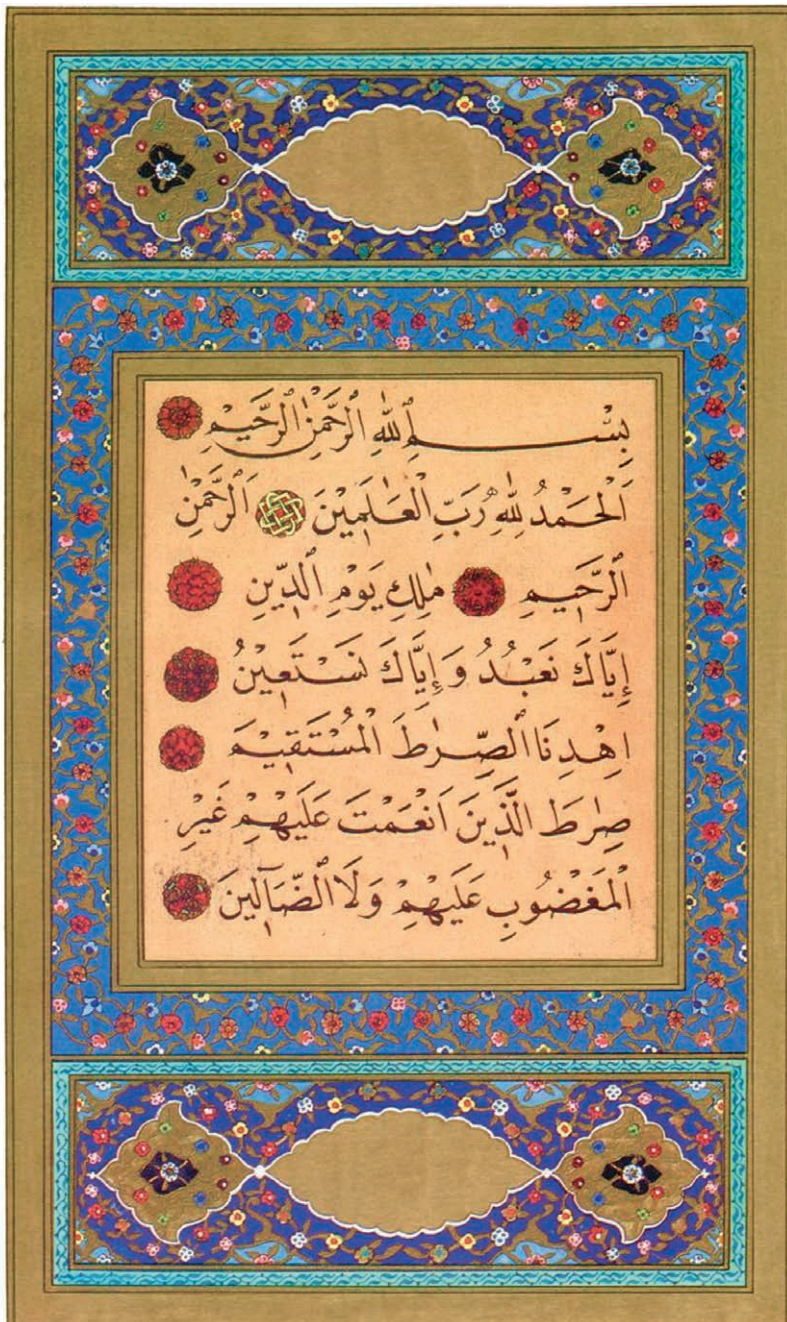 بِسْمِ ٱللّٰهِ ٱلرَّحْمٰنِ ٱلرَّحِيمِ
اَلْحَمْدُ لِلّٰهِ رَبِّ الْعَالَمِينَ اَلرَّحْمٰنِ
ٱلرَّحِيمِ مٰلِكِ يَوْمِ ٱلدِّينِ
إِيَّاكَ نَعْبُدُ وَإِيَّاكَ نَسْتَعِينُ
اِهْدِنَا ٱلصِّرٰطَ الْمُسْتَقِيمَ
صِرٰطَ ٱلَّذِينَ اَنْعَمْتَ عَلَيْهِمْ غَيْرِ
الْمَغْضُوبِ عَلَيْهِمْ وَلَا ٱلضَّٓالِّينَ